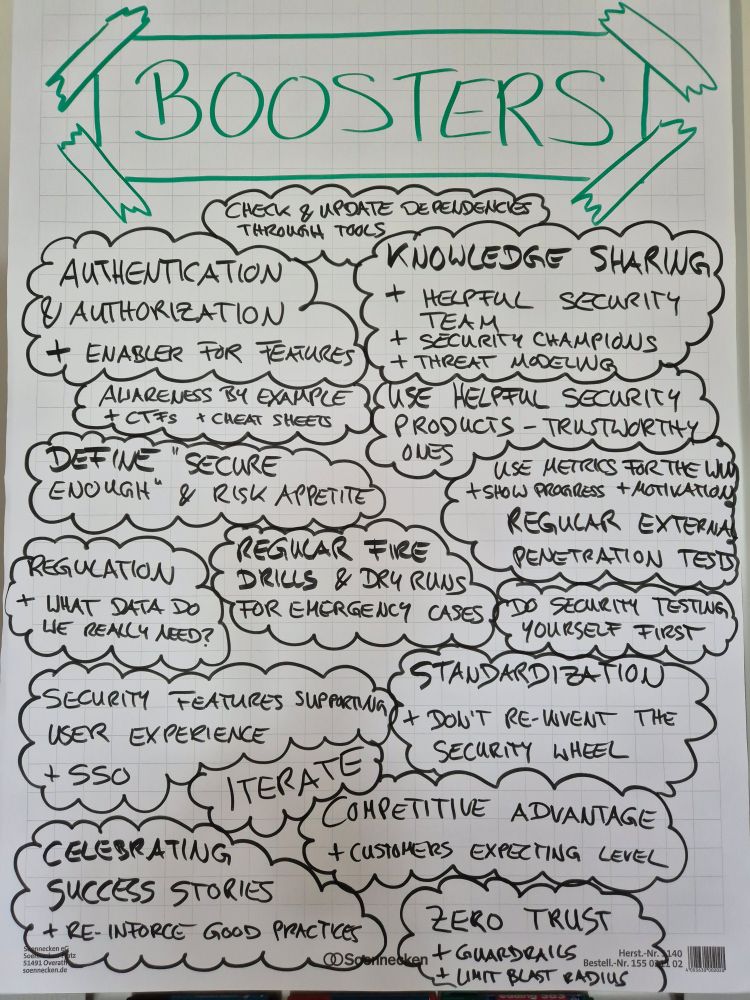 BOOSTERS
CHECK & UPDATE DEPENDENCIES
THROUGH TOOLS
AUTHENTICATION
& AUTHORIZATION
+ ENABLER FOR FEATURES
KNOWLEDGE SHARING
+ HELPFUL SECURITY
TEAM
+ SECURITY CHAMPIONS
+ THREAT MODELING
AWARENESS BY EXAMPLE
+ CTFs + CHEAT SHEETS
USE HELPFUL SECURITY
PRODUCTS - TRUSTWORTHY
ONES
DEFINE "SECURE
ENOUGH" & RISK APPETITE
USE METRICS FOR THE WIN
+ SHOW PROGRESS + MOTIVATION
REGULAR EXTERNAL
PENETRATION TESTS
REGULATION
+ WHAT DATA DO
WE REALLY NEED?
REGULAR FIRE
DRILLS & DRY RUNS
FOR EMERGENCY CASES
DO SECURITY TESTING
YOURSELF FIRST
SECURITY FEATURES SUPPORTING
USER EXPERIENCE
+ SSO
STANDARDIZATION
+ DON'T RE-INVENT THE
SECURITY WHEEL
ITERATE
COMPETITIVE ADVANTAGE
+ CUSTOMERS EXPECTING LEVEL
CELEBRATING
SUCCESS STORIES
+ RE-INFORCE GOOD PRACTICES
ZERO TRUST
+ GUARDRAILS
+ LIMIT BLAST RADIUS
Soennecken eG
51491 Overath
soennecken.de
Soennecken
Herst.-Nr.
Bestell.-Nr. 155 02